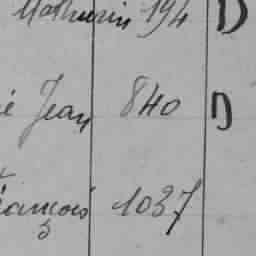 Mathurin 194 D
é Jean 840 D
rançois 1037